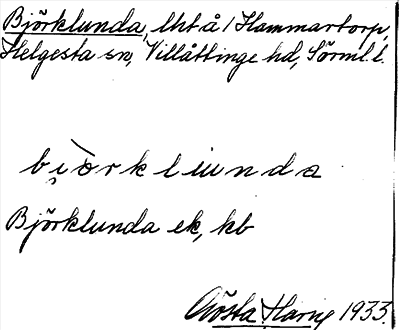 Björklunda, lht å 1 Hammartorp,
Helgesta sn, Villåttinge hd, Sörml. l.
Björklunda ek, kb
Gösta Haring 1933.